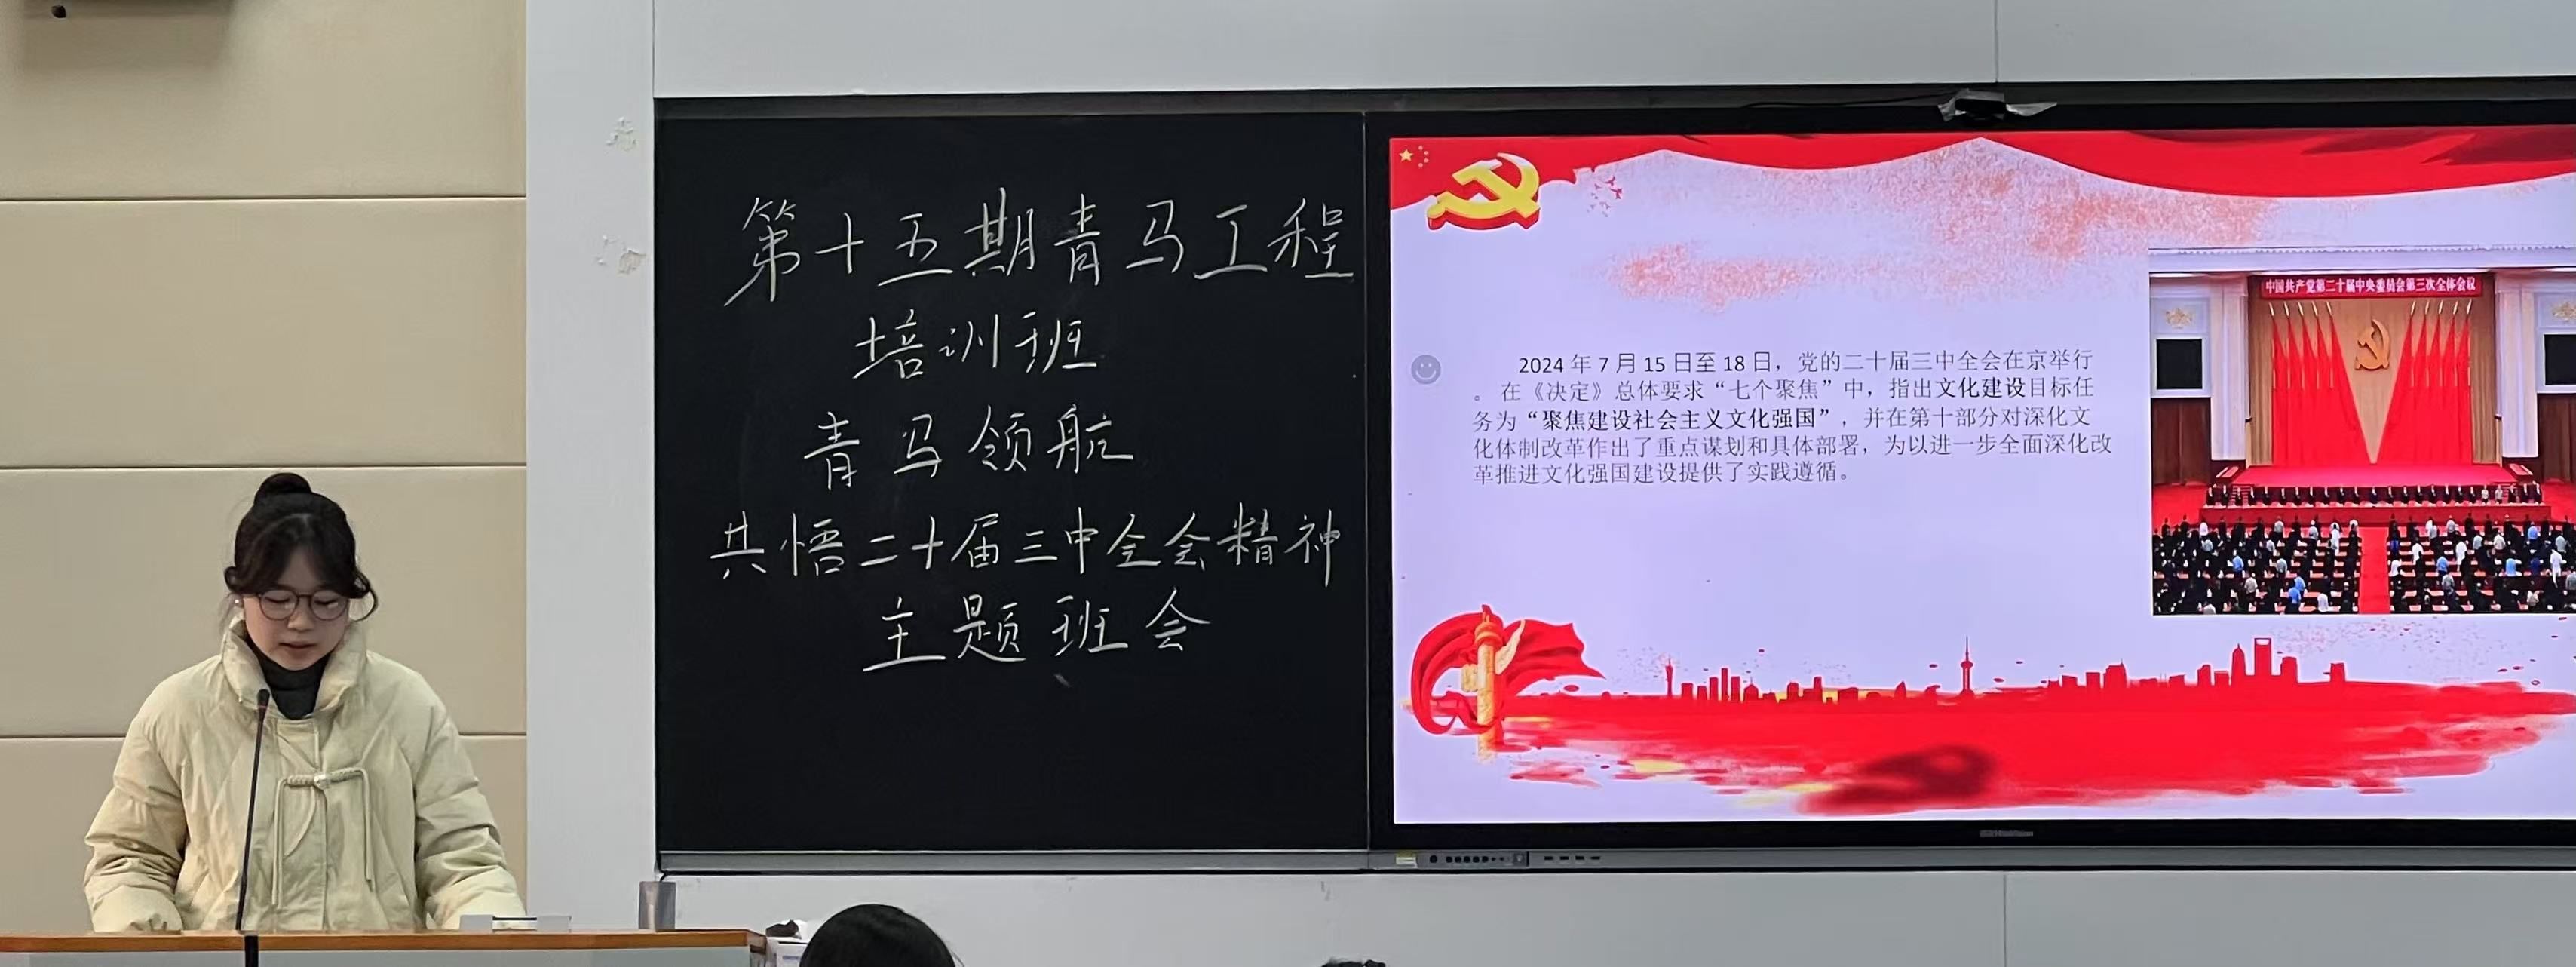 第十五期青马工程
培训班
青马领航
共悟二十届三中全会精神
主题班会
中国共产党第二十届中央委员会第三次全体会议
2024年7月15日至18日，党的二十届三中全会在京举行
。在《决定》总体要求“七个聚焦”中，指出文化建设目标任
务为“聚焦建设社会主义文化强国”，并在第十部分对深化文
化体制改革作出了重点谋划和具体部署，为以进一步全面深化改
革推进文化强国建设提供了实践遵循。